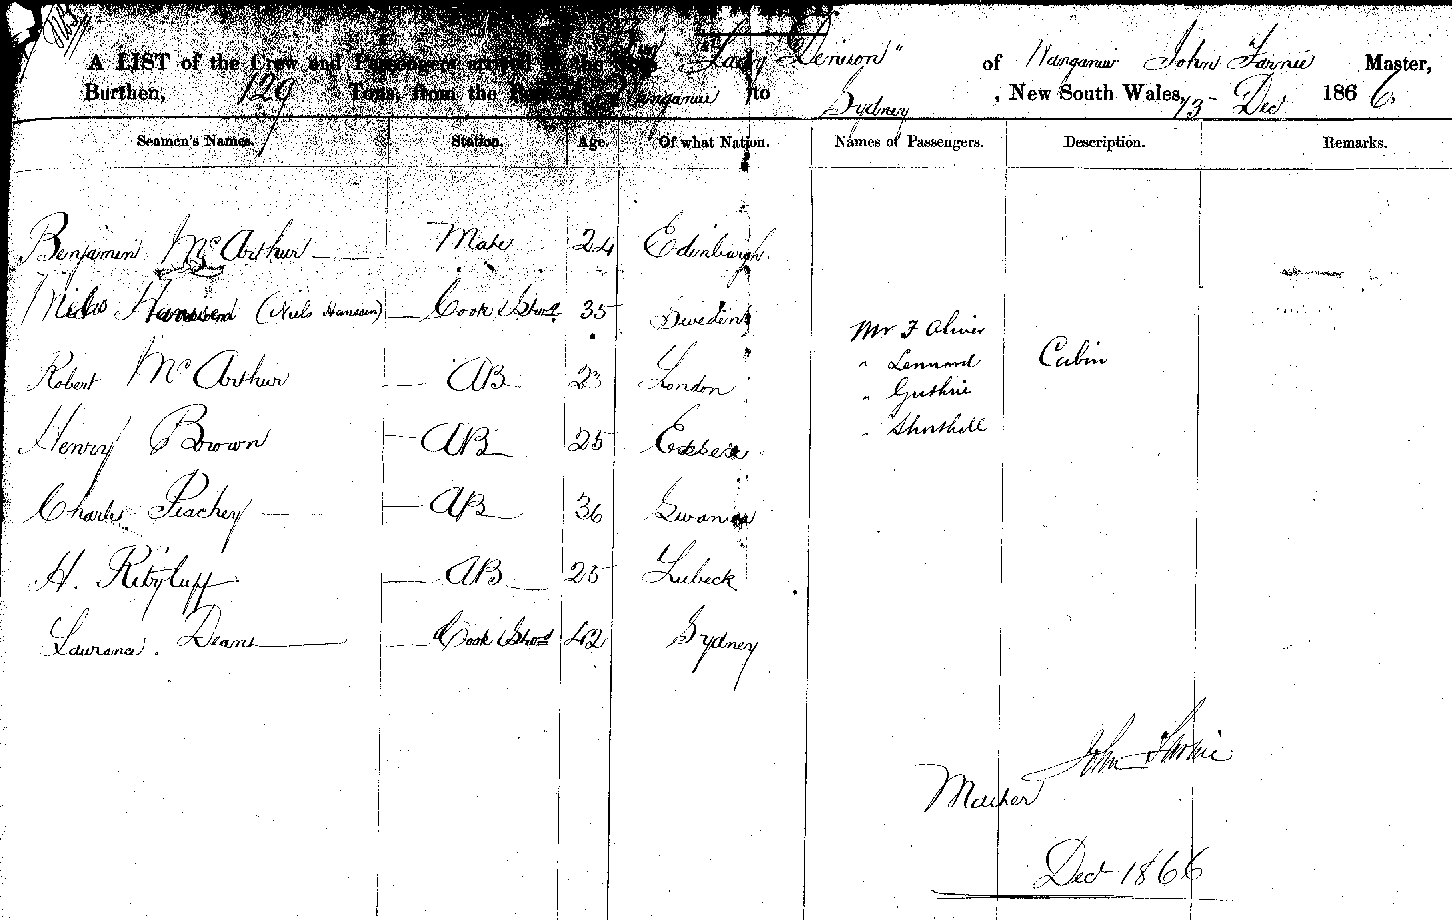 A LIST of the Crew and Passengers arrived in the Ship "Lady Denison" of Wanganui John Farnie Master,
Burthen, 129 Tons, from the Port of Wanganui to Sydney, New South Wales, 13 Dec 1866
Seamen's Names. Station. Age. Of what Nation. Names of Passengers. Description. Remarks.
Benjamin McArthur Mate 24 Edinburgh
Niels Hansen (Niels Hansen) Cook & Stwd 35 Sweden
Mr F Oliver
" Lennard Cabin
Robert McArthur AB 23 London
" Guthrie
"
Henry Brown AB 25 Essex
Charles Peachey AB 36 Swansea
H. AB 25 Lubeck
Deans Cook & Stwd 42 Sydney
John Farnie
Master
Dec 1866